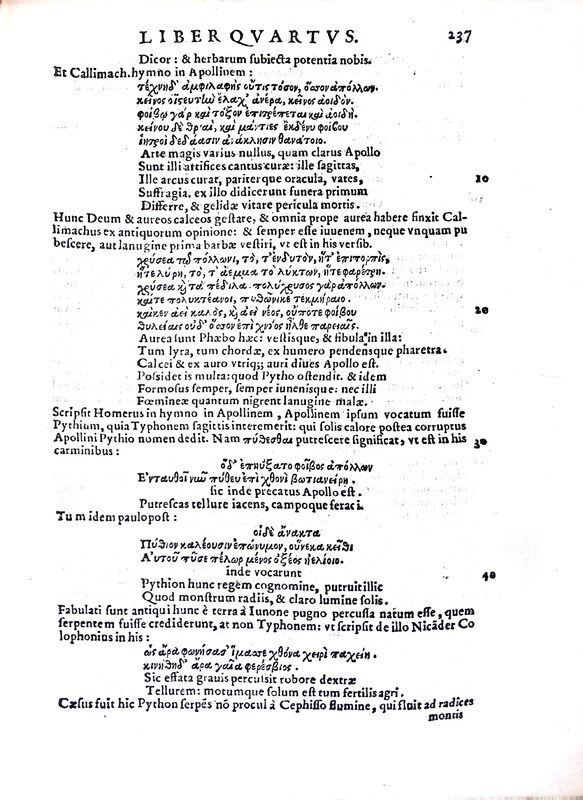 LIBER QVARTVS. 237
Dicor: & herbarum subiecta potentia nobis.
Et Callimach. hymno in Apollinem:
τέχνηδ' ἀμφιλαφὴς οὔτις τόσον, ὅσσον ἀπόλλων.
κεῖνος ὀϊστευτὼ ἔλαχ' ἀνέρα, κεῖνος ἀοιδόν.
φοίβῳ γάρ καὶ τόξον ἐπιτρέπεται καὶ ἀοιδή.
κείνου δὲ θριαὶ, καὶ μάντιες ἐκδένυ φοίβου
ἰητροὶ δεδάασιν ἀνάκλησιν θανάτοιο.
Arte magis varius nullus, quam clarus Apollo
Sunt illi artifices cantus curæ: ille sagittas,
Ille arcus curat, pariterque oracula, vates, 10
Suffragia. ex illo didicerunt funera primum
Differre, & gelidæ vitare pericula mortis.
Hunc Deum & aureos calceos gestare, & omnia prope aurea habere finxit Cal-
limachus ex antiquorum opinione: & semper esse iuuenem, neque vnquam pu
bescere, aut lanugine prima barbæ vestiri, vt est in his versib.
χρύσεα τῷ πόλλωνι, τὸ, τ' ἐνδυτὸν, ἥτ' ἐπιπορπίς,
ἥτε λύρη, τὸ, τ' ἄεμμα τὸ λύκτιον, ἥτε φαρέτρη.
χρύσεα κ̀ τὰ πέδιλα. πολύχρυσος γὰρ ἀπόλλων.
καί τε πολυκτέανοι, πυθῶνι κε τεκμήραιο.
καὶ κεν ἀεὶ καλὸς, κ̀ ἀεὶ νέος, οὔποτε φοίβου 20
θυλείαις οὐδ' ὅσσον ἐπὶ χνόος ἦλθε παρειαῖς.
Aurea sunt Phæbo hæc: vestisque, & fibula in illa:
Tum lyra, tum chordæ, ex humero pendensque pharetra.
Calcei & ex auro vtriq;; auri diues Apollo est.
Possidet is multa: quod Pytho ostendit. & idem
Formosus semper, semper iunenisque: nec illi
Fœmineæ quantum nigrent lanugine malæ.
Scripsit Homerus in hymno in Apollinem, Apollinem ipsum vocatum fuisse
Pythium, quia Typhonem sagittis interemerit: qui solis calore postea corruptus
Apollini Pythio nomen dedit. Nam πύθεσθαι putrescere significat, vt est in his 30
carminibus:
ὁδ' ἐπηύξατο φοῖβος ἀπόλλων
Ἐνταυθοῖ νῦν πύθευ ἐπὶ χθονὶ βωτιανείρῃ.
sic inde precatus Apollo est.
Putrescas tellure iacens, campoque feraci.
Tum idem paulo post:
οἱ δὲ ἄνακτα
Πύθιον καλέουσιν ἐπώνυμον, οὕνεκα κεῖθι
Αὐτοῦ πῦσε πέλωρ μένος ὀξέος ἠελίοιο.
inde vocarunt 40
Pythion hunc regem cognomine, putruit illic
Quod monstrum radiis, & claro lumine solis.
Fabulati sunt antiqui hunc è terra à Iunone pugno percussa natum esse, quem
serpentem fuisse crediderunt, at non Typhonem: vt scripsit de illo Nicãder Co
lophonius in his:
ὡς ἄρα φωνήσασ' ἵμασσε χθόνα χειρὶ παχείῃ.
κινήθηδ' ἄρα γαῖα φερέσβιος.
Sic effata grauis percussit robore dextræ
Tellurem: motumque solum est tum fertilis agri.
Cæsus fuit hic Python serpẽs nõ procul à Cephisso flumine, qui fluit ad radices
montis